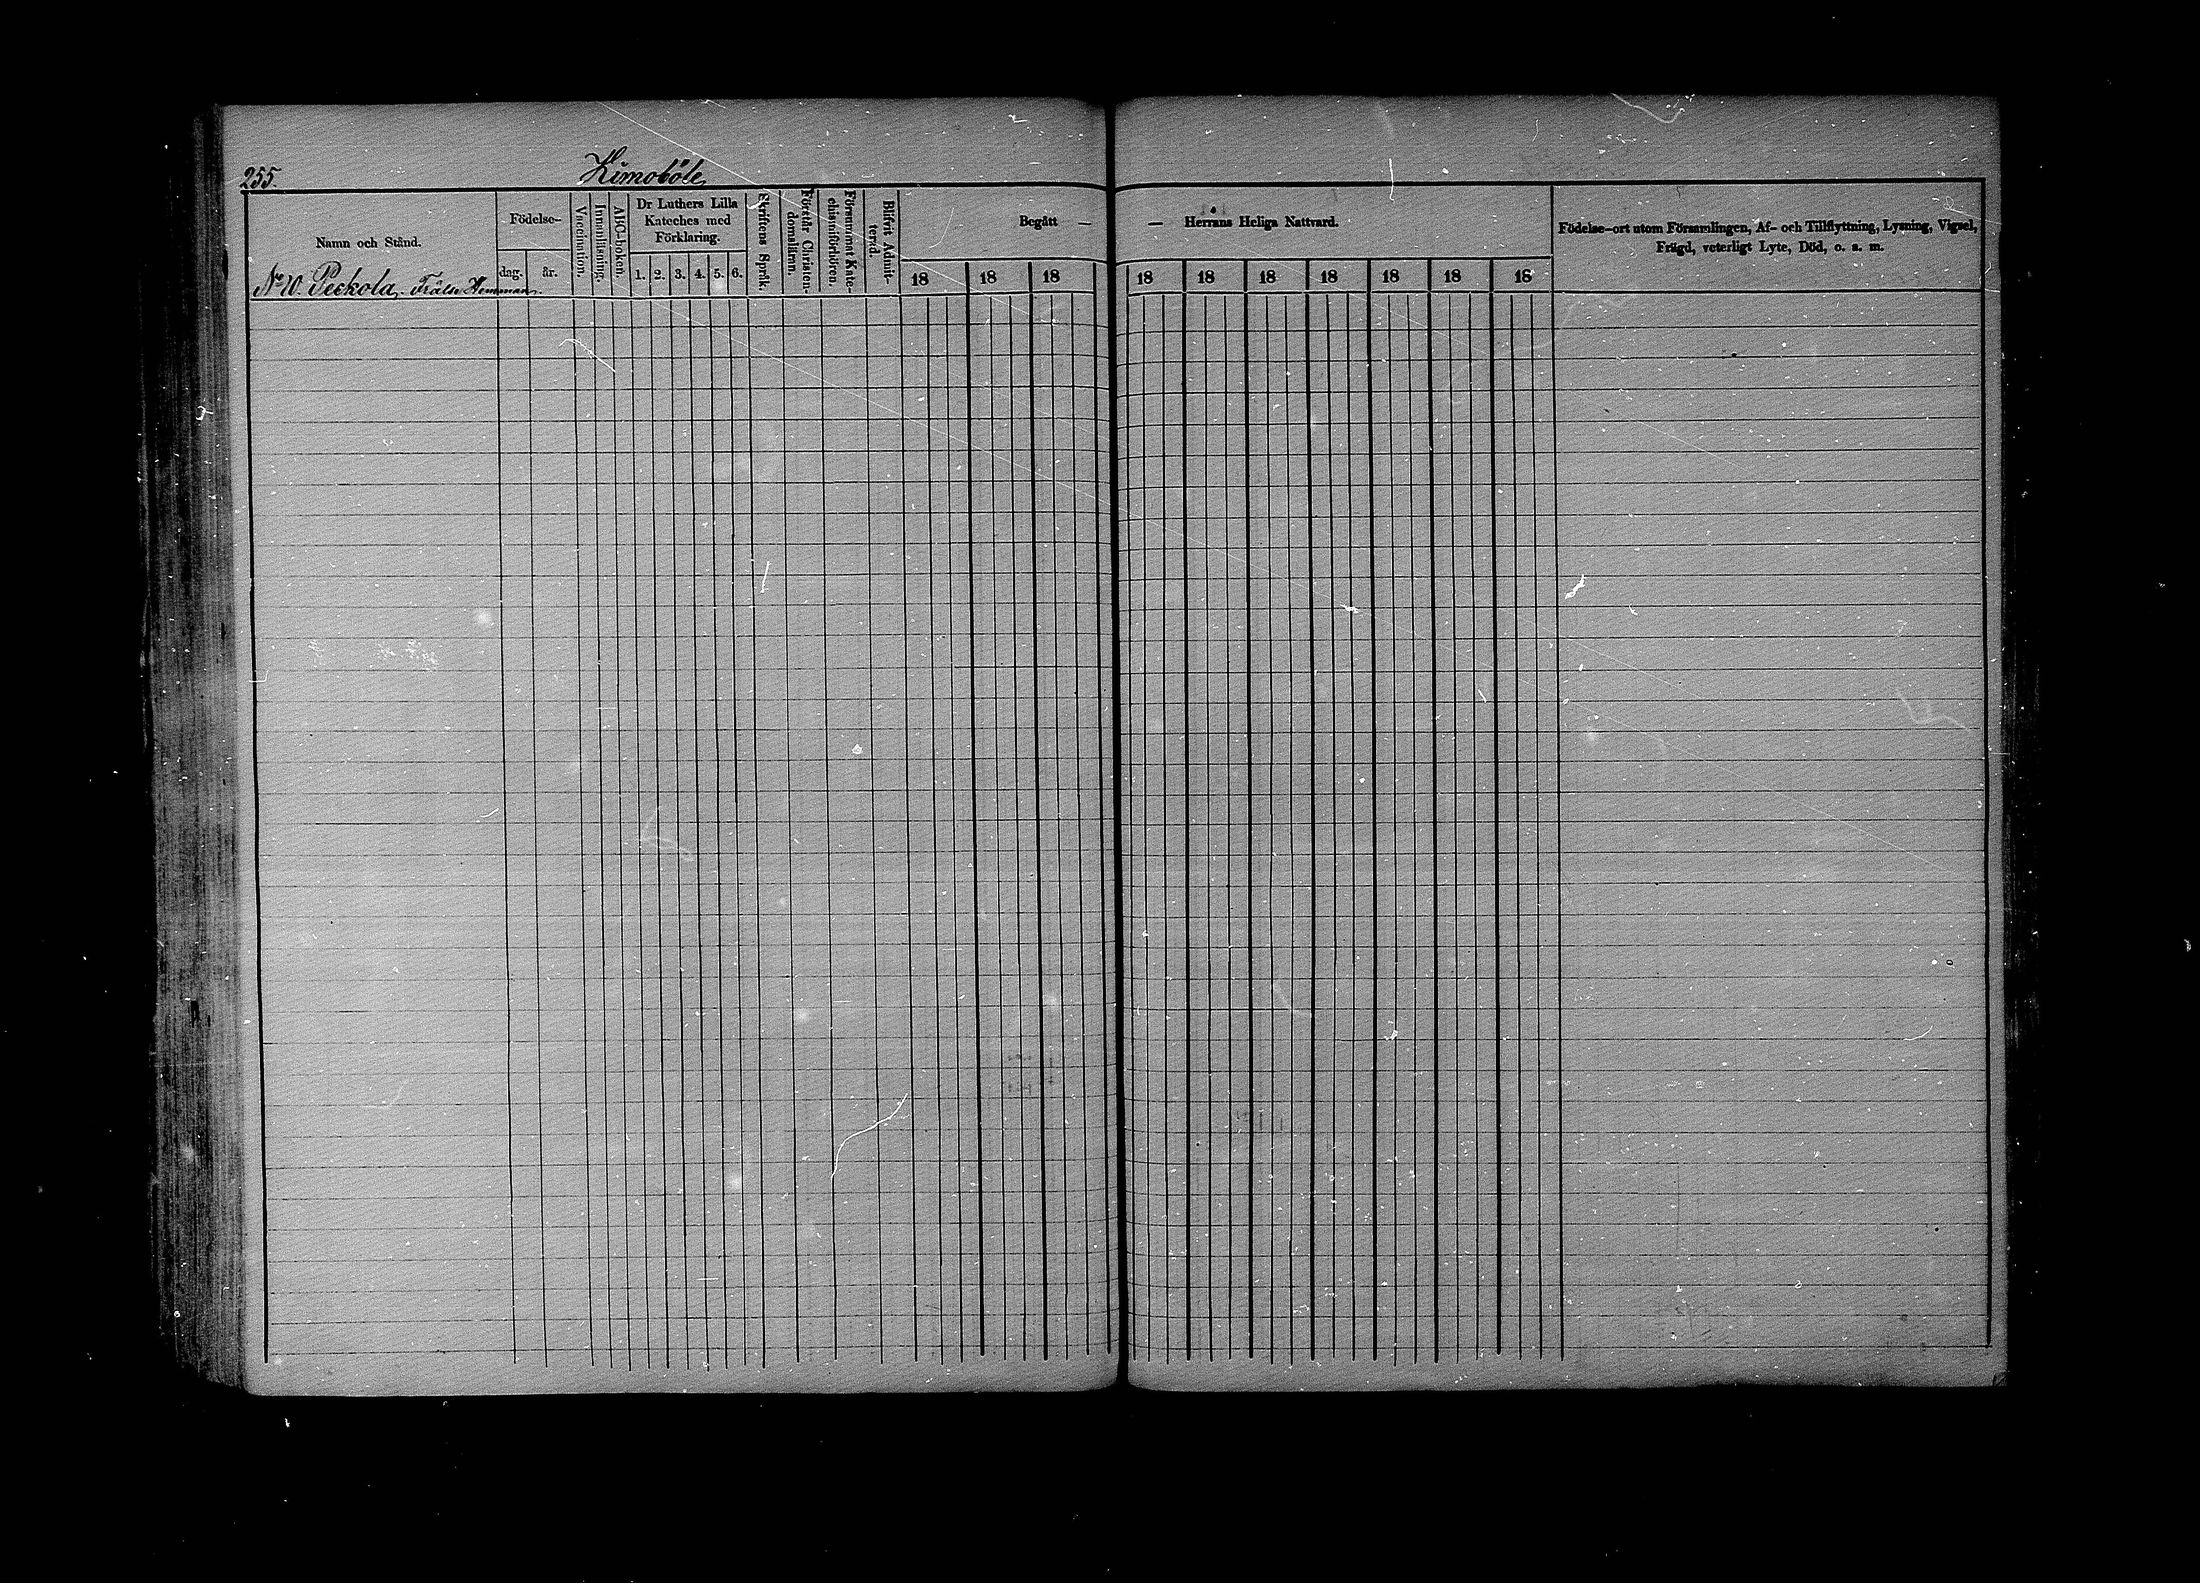 255.
Kimoböle
Namn och Stånd.
Födelse-
dag.
år.
Vaccination.
Innanläsning.
ABC-boken.
Dr Luthers Lilla
Kateches med
Förklaring.
1. 2. 3. 4. 5. 6.
Skriftens Språk.
Förstår Christen-
domsläran.
Försummat Kate-
chismiförhören.
Blifvit Admit-
terad.
Begått —
18 18 18
— Herrans Heliga Nattvard.
18 18 18 18 18 18 18
Födelse-ort utom Församlingen, Af- och Tillflyttning, Lysning, Vigsel,
Frägd, veterligt Lyte, Död, o. s. m.
No 10. Peckola, Frälse Hemman.